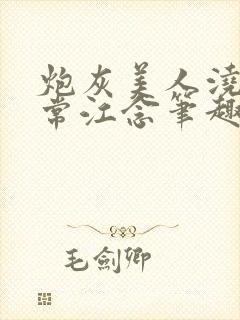 炮灰美人浇
常江念笔趣
毛劍卿